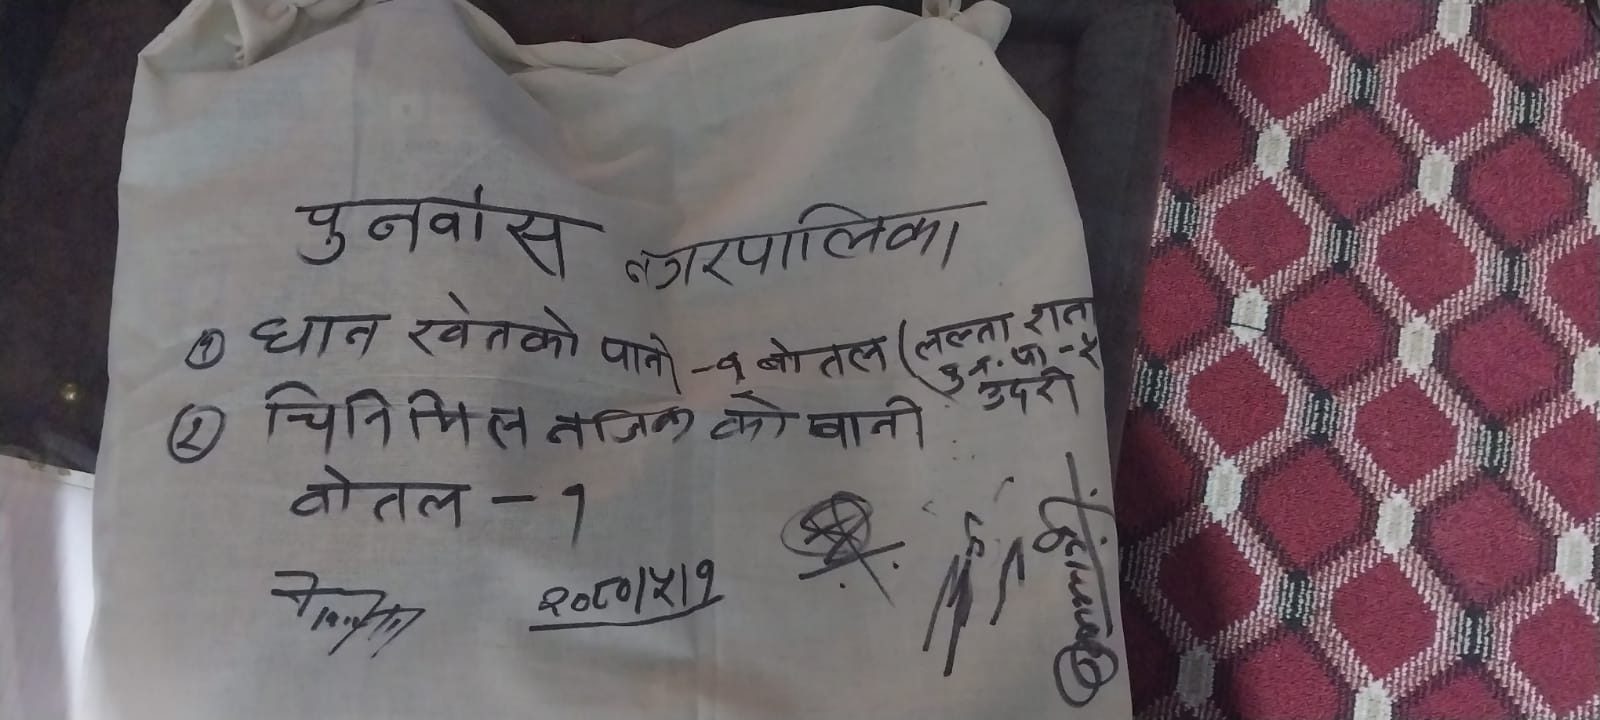 पुनर्वास नगरपालिका
① धान खेतको पानी -१ बोतल (लल्ता राना
पु.न.पा-५
उदरी
② चिनि मिल नजिक को पानी
बोतल - १
२०८०।५।१